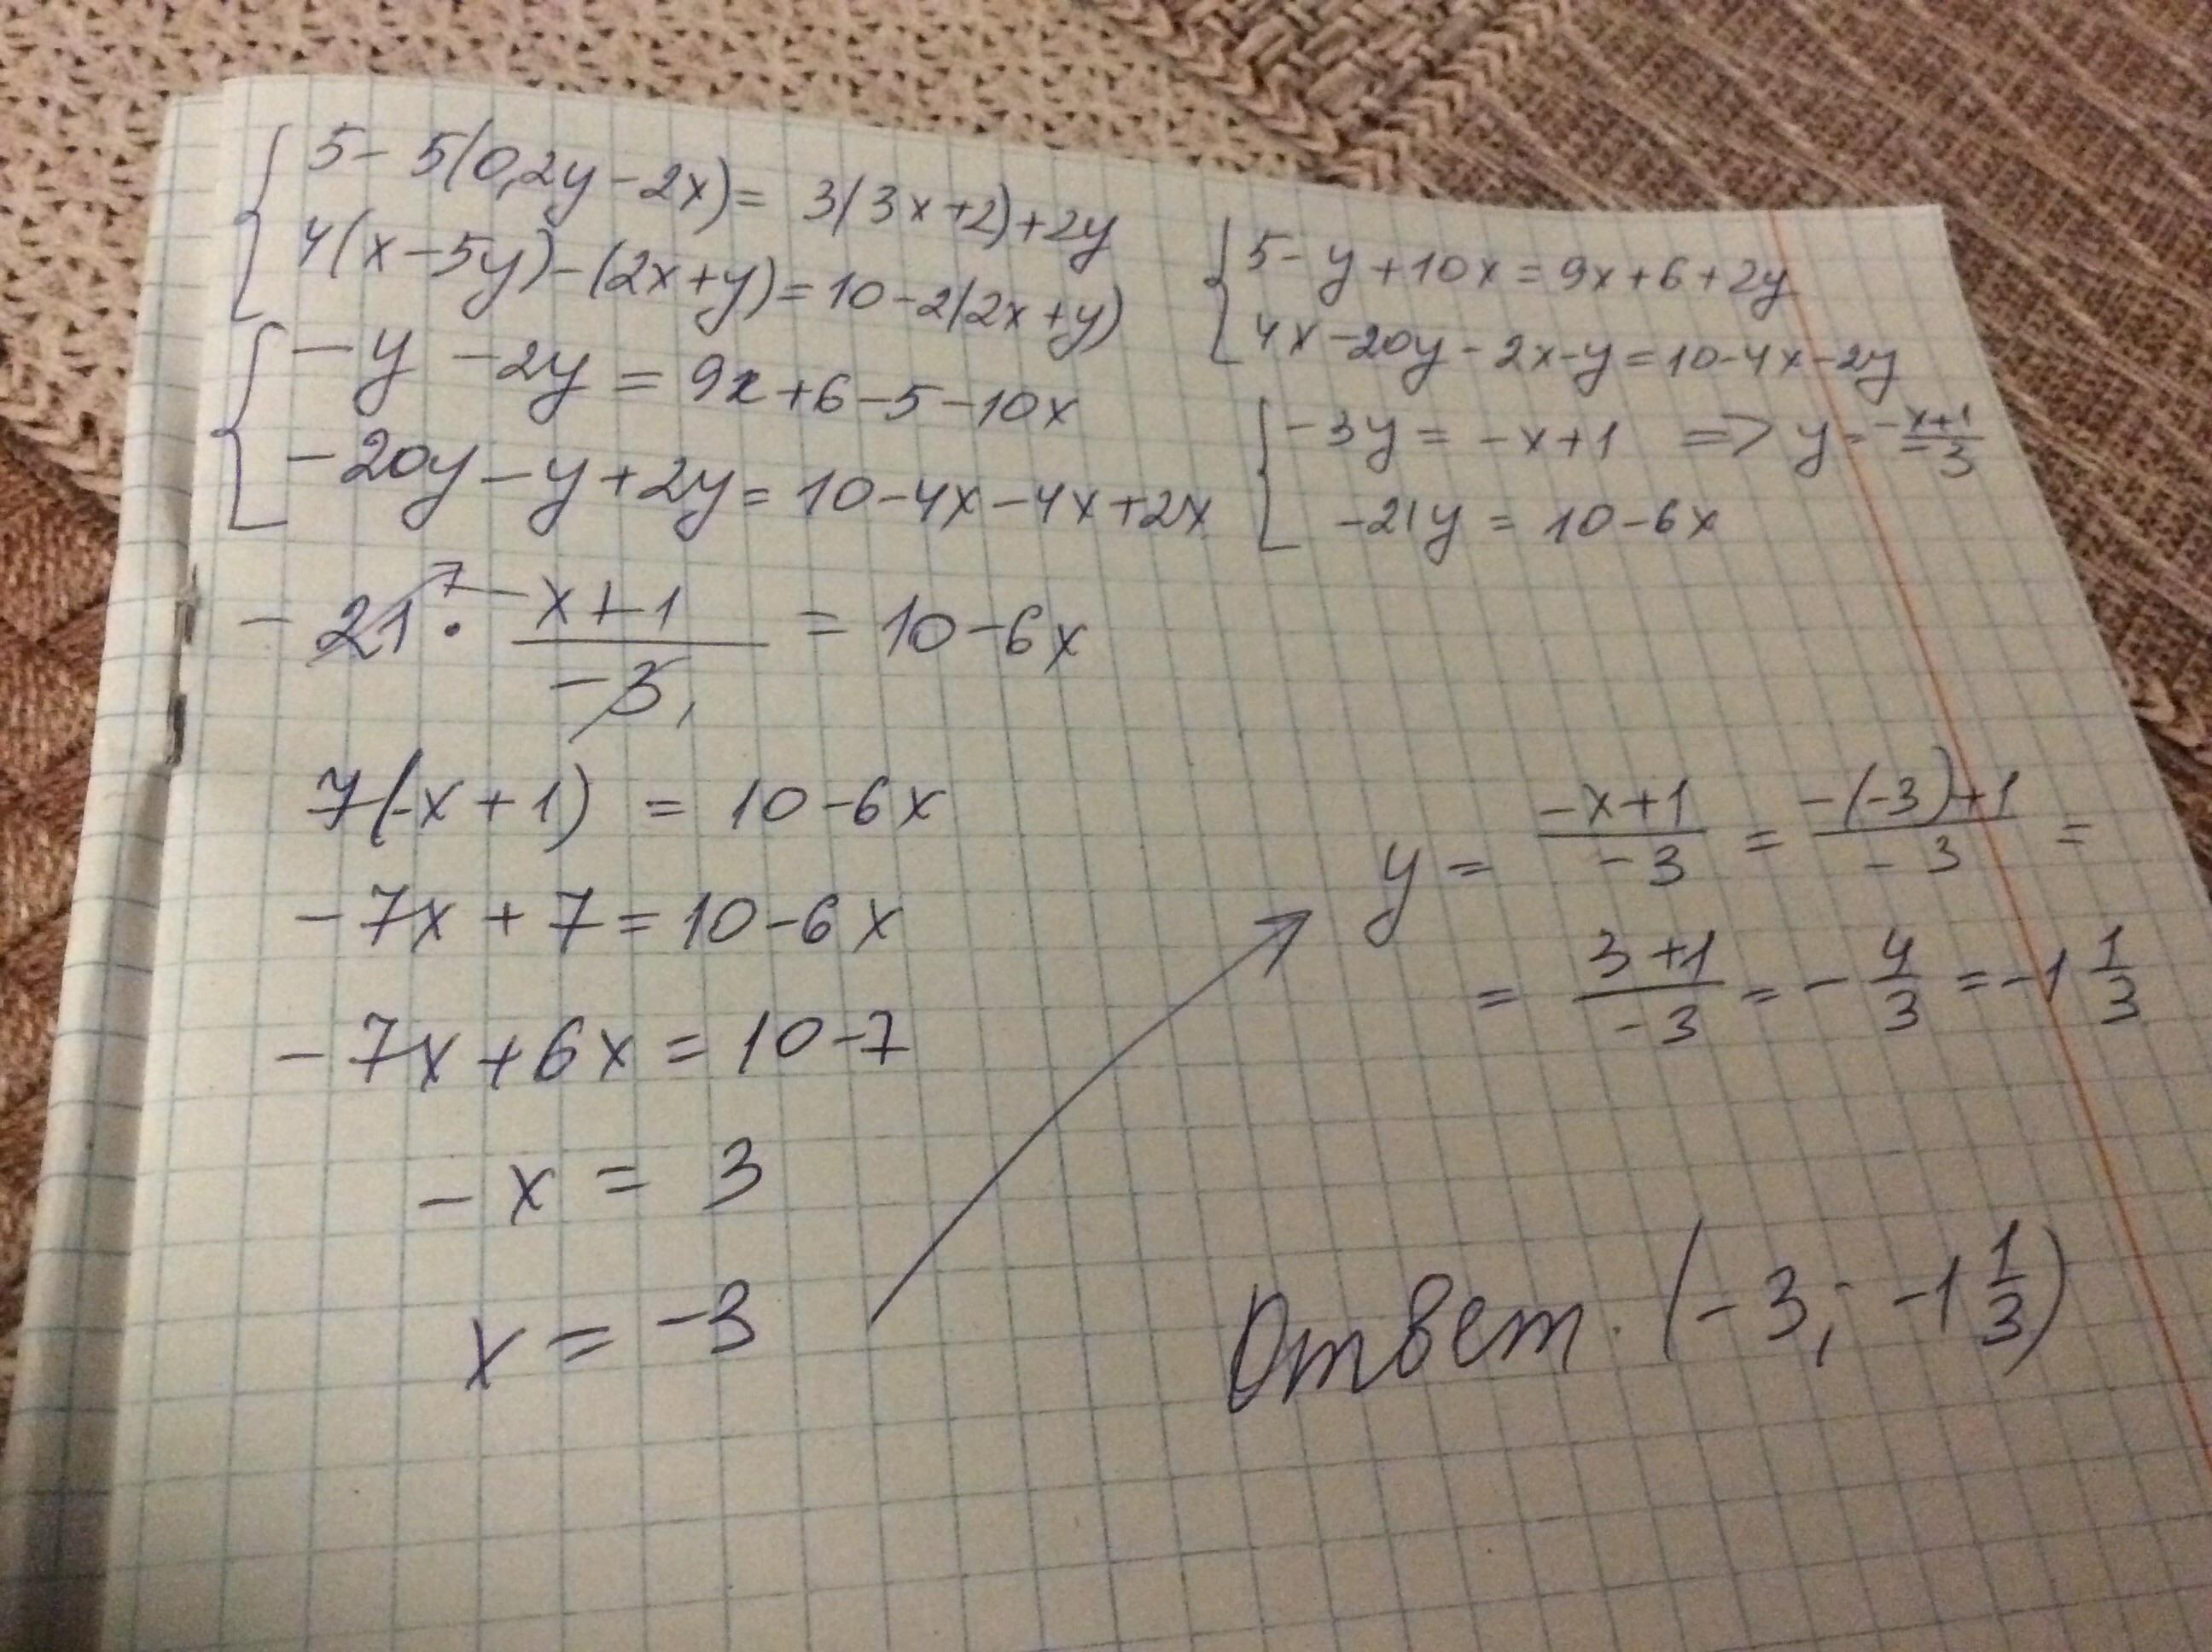 5 - 5(0,2y - 2x) = 3(3x + 2) + 2y
4(x - 5y) - (2x + y) = 10 - 2(2x + y)
5 - y + 10x = 9x + 6 + 2y
4x - 20y - 2x - y = 10 - 4x - 2y
- y - 2y = 9x + 6 - 5 - 10x
- 20y - y + 2y = 10 - 4x - 4x + 2x
- 3y = - x + 1 => y = \frac{-x+1}{-3}
- 21y = 10 - 6x
- 21^7 · \frac{-x+1}{-3_1} = 10 - 6x
7(-x + 1) = 10 - 6x
- 7x + 7 = 10 - 6x
- 7x + 6x = 10 - 7
- x = 3
x = -3
y = \frac{-x+1}{-3} = \frac{-(-3)+1}{-3} =
= \frac{3+1}{-3} = - \frac{4}{3} = -1 \frac{1}{3}
Ответ. (-3; -1 \frac{1}{3})